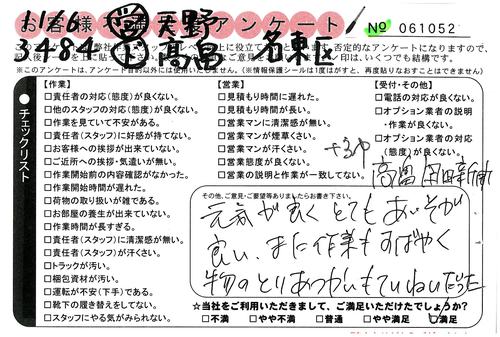 11/6 天野
お客様 アンケート
No 061052
3484 高畠 名東区
※このアンケートは、アンケート目的以外には使用いたしません。(※情報保護シールは1度がはすと、再度貼りなおすことはできません)
チェックリスト
【作業】
□責任者の対応(態度)が良くない。
□他のスタッフの対応(態度)が良くない。
□作業を見ていて不安がある。
□責任者(スタッフ)に好感が持てない。
□お客様への挨拶が出来ていない。
□ご近所への挨拶・気遣いが無い。
□作業開始前の内容確認がなかった。
□作業開始時間が遅れた。
□荷物の取り扱いが雑である。
□お部屋の養生が出来ていない。
□作業時間が長すぎる。
□責任者(スタッフ)に清潔感が無い。
□責任者(スタッフ)が汗くさい。
□トラックが汚い。
□梱包資材が汚い。
□運転が不安(下手)である。
□靴下の履き替えをしてない。
□スタッフにやる気がみられない。
【営業】
□見積もり時間に遅れた。
□見積もり時間が長い。
□営業マンに清潔感が無い。
□営業マンが煙草くさい。
□営業マンが汗くさい。
□営業態度が良くない。
□営業の説明と作業が一致してない。
【受付・その他】
□電話の対応が良くない。
□オプション業者の説明
・作業が良くない。
□オプション業者の対応
(態度)が良くない。
その他、ご意見・ご要望等ありましたらお書き下さい。
元気が良く とても あいそが
良い、また 作業も すばやく
物のとりあつかいもていねいだった
☆当社をご利用いただきまして、ご満足いただけたでしょうか?
□不満 □やや不満 □普通 □やや満足 □満足